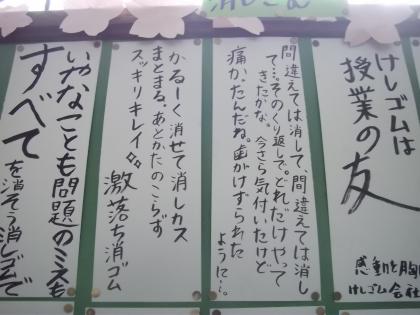 消しごむ
けしゴムは
授業の友
感動と胸
けしゴム会社
間違えては消して、間違えては消し
て…。そのくり返しで、どれだけやって
きたかな。今さら気付いたけど
痛かったんだね。歯がけずられた
ように…。
かるーく消せて消しカス
まとまる、あとかたのこらず
スッキリキレイ。激落ち消ゴム
いやなことも問題のミスも
すべて
を消そう消しゴムで